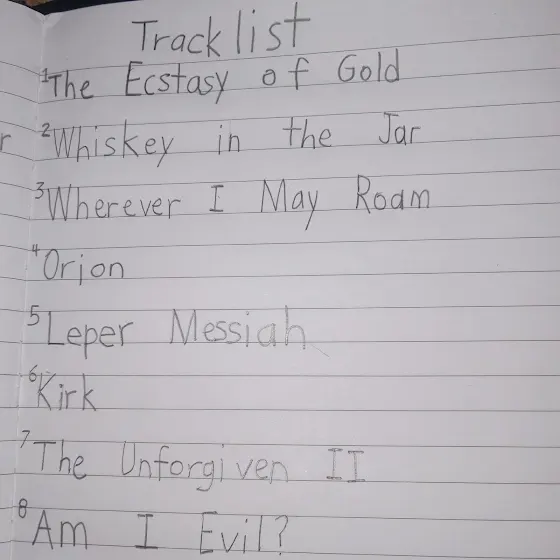 Tracklist
1 The Ecstasy of Gold
r
2 Whiskey in the Jar
3 Wherever I May Roam
4 Orion
5 Leper Messiah
6 Kirk
7 The Unforgiven II
8 Am I Evil?